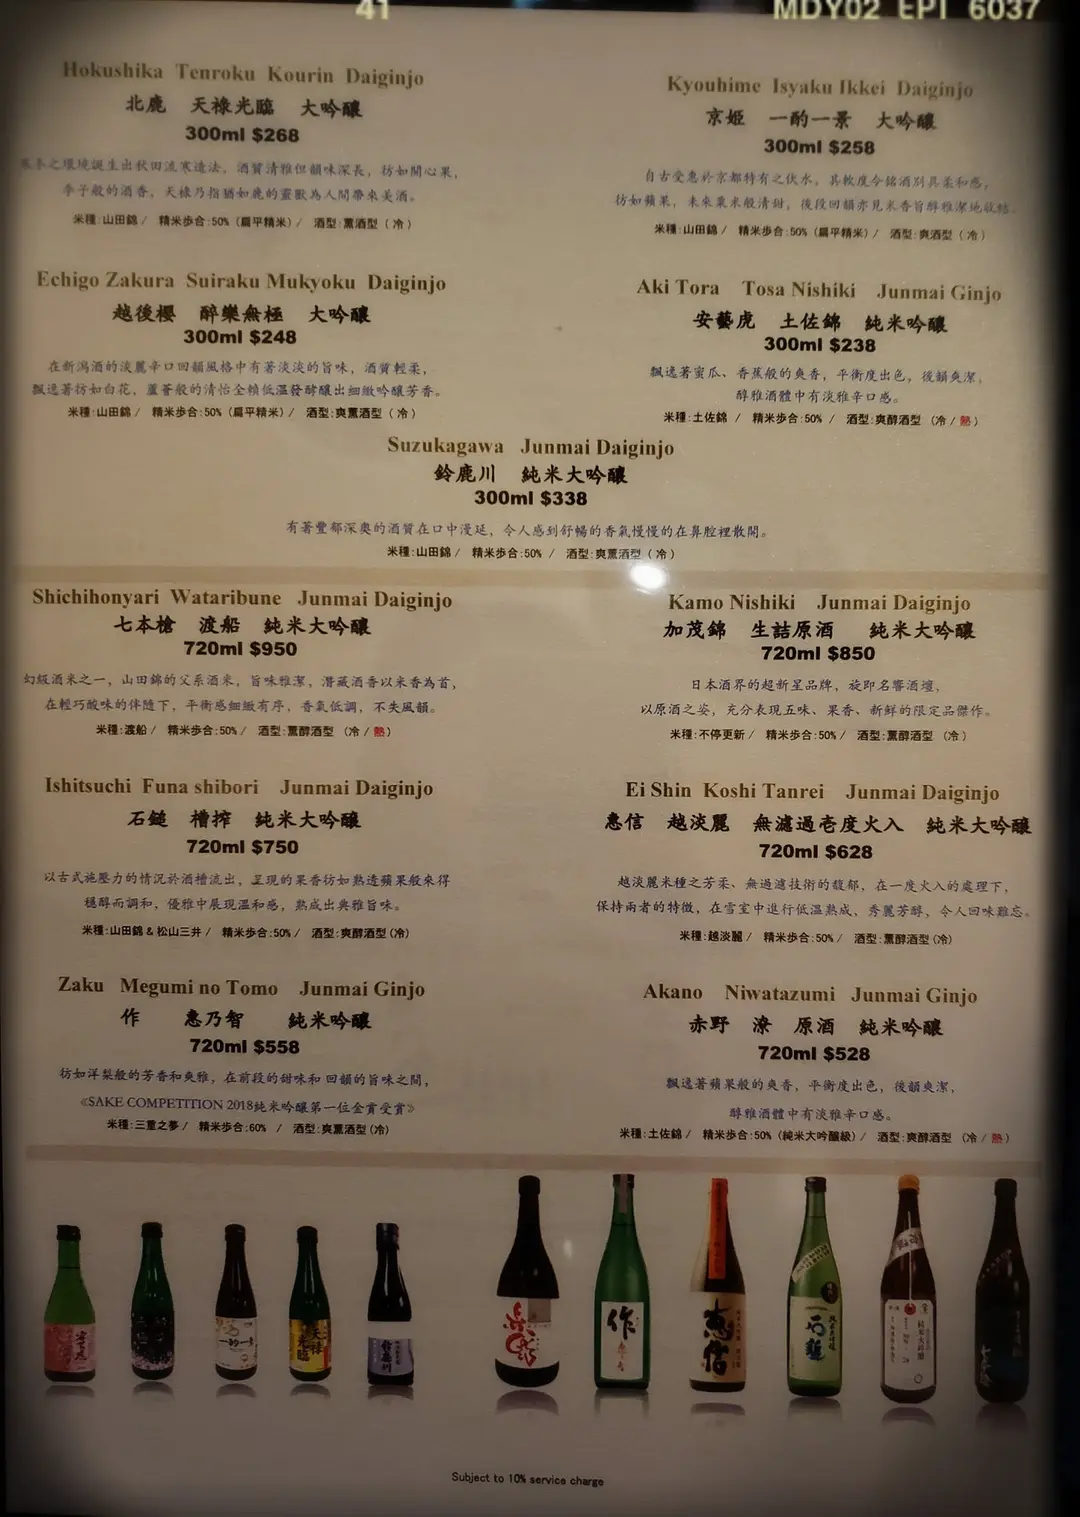 41
MDY02 EPI 6037
Hokushika Tenroku Kourin Daiginjo
北鹿 天祿光臨 大吟釀
300ml $268
寒冬之環境誕生出秋田流寒造法，酒質清雅但韻味深長，彷如開心果，
李子般的酒香，天祿乃指猶如鹿的靈獸為人間帶來美酒。
米種:山田錦 / 精米步合:50% (扁平精米) / 酒型:薰酒型 (冷)
Kyouhime Isyaku Ikkei Daiginjo
京姬 一酌一景 大吟釀
300ml $258
自古受惠於京都特有之伏水，其軟度令銘酒別具柔和感，
彷如蘋果，未來粟米般清甜，後段回韻亦見米香旨醇雅潔地收結。
米種:山田錦 / 精米步合:50% (扁平精米) / 酒型:爽酒型 (冷)
Echigo Zakura Suiraku Mukyoku Daiginjo
越後櫻 醉樂無極 大吟釀
300ml $248
在新潟酒的淡麗辛口回韻風格中有著淡淡的旨味，酒質輕柔，
飄逸著彷如白花，蘆薈般的清怡全賴低溫發酵釀出細緻吟釀芳香。
米種:山田錦 / 精米步合:50% (扁平精米) / 酒型:爽薰酒型 (冷)
Aki Tora Tosa Nishiki Junmai Ginjo
安藝虎 土佐錦 純米吟釀
300ml $238
飄逸著蜜瓜、香蕉般的爽香，平衡度出色，後韻爽潔，
醇雅酒體中有淡雅辛口感。
米種:土佐錦 / 精米步合:50% / 酒型:爽醇酒型 (冷 / 熱)
Suzukagawa Junmai Daiginjo
鈴鹿川 純米大吟釀
300ml $338
有著豐郁深奧的酒質在口中漫延，令人感到舒暢的香氣慢慢的在鼻腔裡散開。
米種:山田錦 / 精米步合:50% / 酒型:爽薰酒型 (冷)
Shichihonyari Wataribune Junmai Daiginjo
七本槍 渡船 純米大吟釀
720ml $950
幻級酒米之一，山田錦的父系酒米，旨味雅潔，潛藏酒香以米香為首，
在輕巧酸味的伴隨下，平衡感細緻有序，香氣低調，不失風韻。
米種:渡船 / 精米步合:50% / 酒型:薰醇酒型 (冷 / 熱)
Kamo Nishiki Junmai Daiginjo
加茂錦 生詰原酒 純米大吟釀
720ml $850
日本酒界的超新星品牌，旋即名響酒壇，
以原酒之姿，充分表現五味、果香、新鮮的限定品傑作。
米種:不停更新 / 精米步合:50% / 酒型:薰醇酒型 (冷)
Ishitsuchi Funa shibori Junmai Daiginjo
石鎚 槽搾 純米大吟釀
720ml $750
以古式施壓力的情況於酒槽流出，呈現的果香彷如熟透蘋果般來得
穩醇而調和，優雅中展現溫和感，熟成出典雅旨味。
米種:山田錦 & 松山三井 / 精米步合:50% / 酒型:爽醇酒型 (冷)
Ei Shin Koshi Tanrei Junmai Daiginjo
惠信 越淡麗 無濾過壱度火入 純米大吟釀
720ml $628
越淡麗米種之芳柔、無過濾技術的馥郁，在一度火入的處理下，
保持兩者的特徵，在雪室中進行低溫熟成，秀麗芳醇，令人回味難忘。
米種:越淡麗 / 精米步合:50% / 酒型:薰醇酒型 (冷)
Zaku Megumi no Tomo Junmai Ginjo
作 惠乃智 純米吟釀
720ml $558
彷如洋梨般的芳香和爽雅，在前段的甜味和 回韻的旨味之間，
《SAKE COMPETITION 2018純米吟釀第一位金賞受賞》
米種:三重之夢 / 精米步合:60% / 酒型:爽薰酒型 (冷)
Akano Niwatazumi Junmai Ginjo
赤野 潦 原酒 純米吟釀
720ml $528
飄逸著蘋果般的爽香，平衡度出色，後韻爽潔，
醇雅酒體中有淡雅辛口感。
米種:土佐錦 / 精米步合:50% (純米大吟釀級) / 酒型:爽醇酒型 (冷 / 熱)
一酌一景
天祿光臨
鈴鹿川
作
惠信
石鎚
純米大吟醸
Subject to 10% service charge